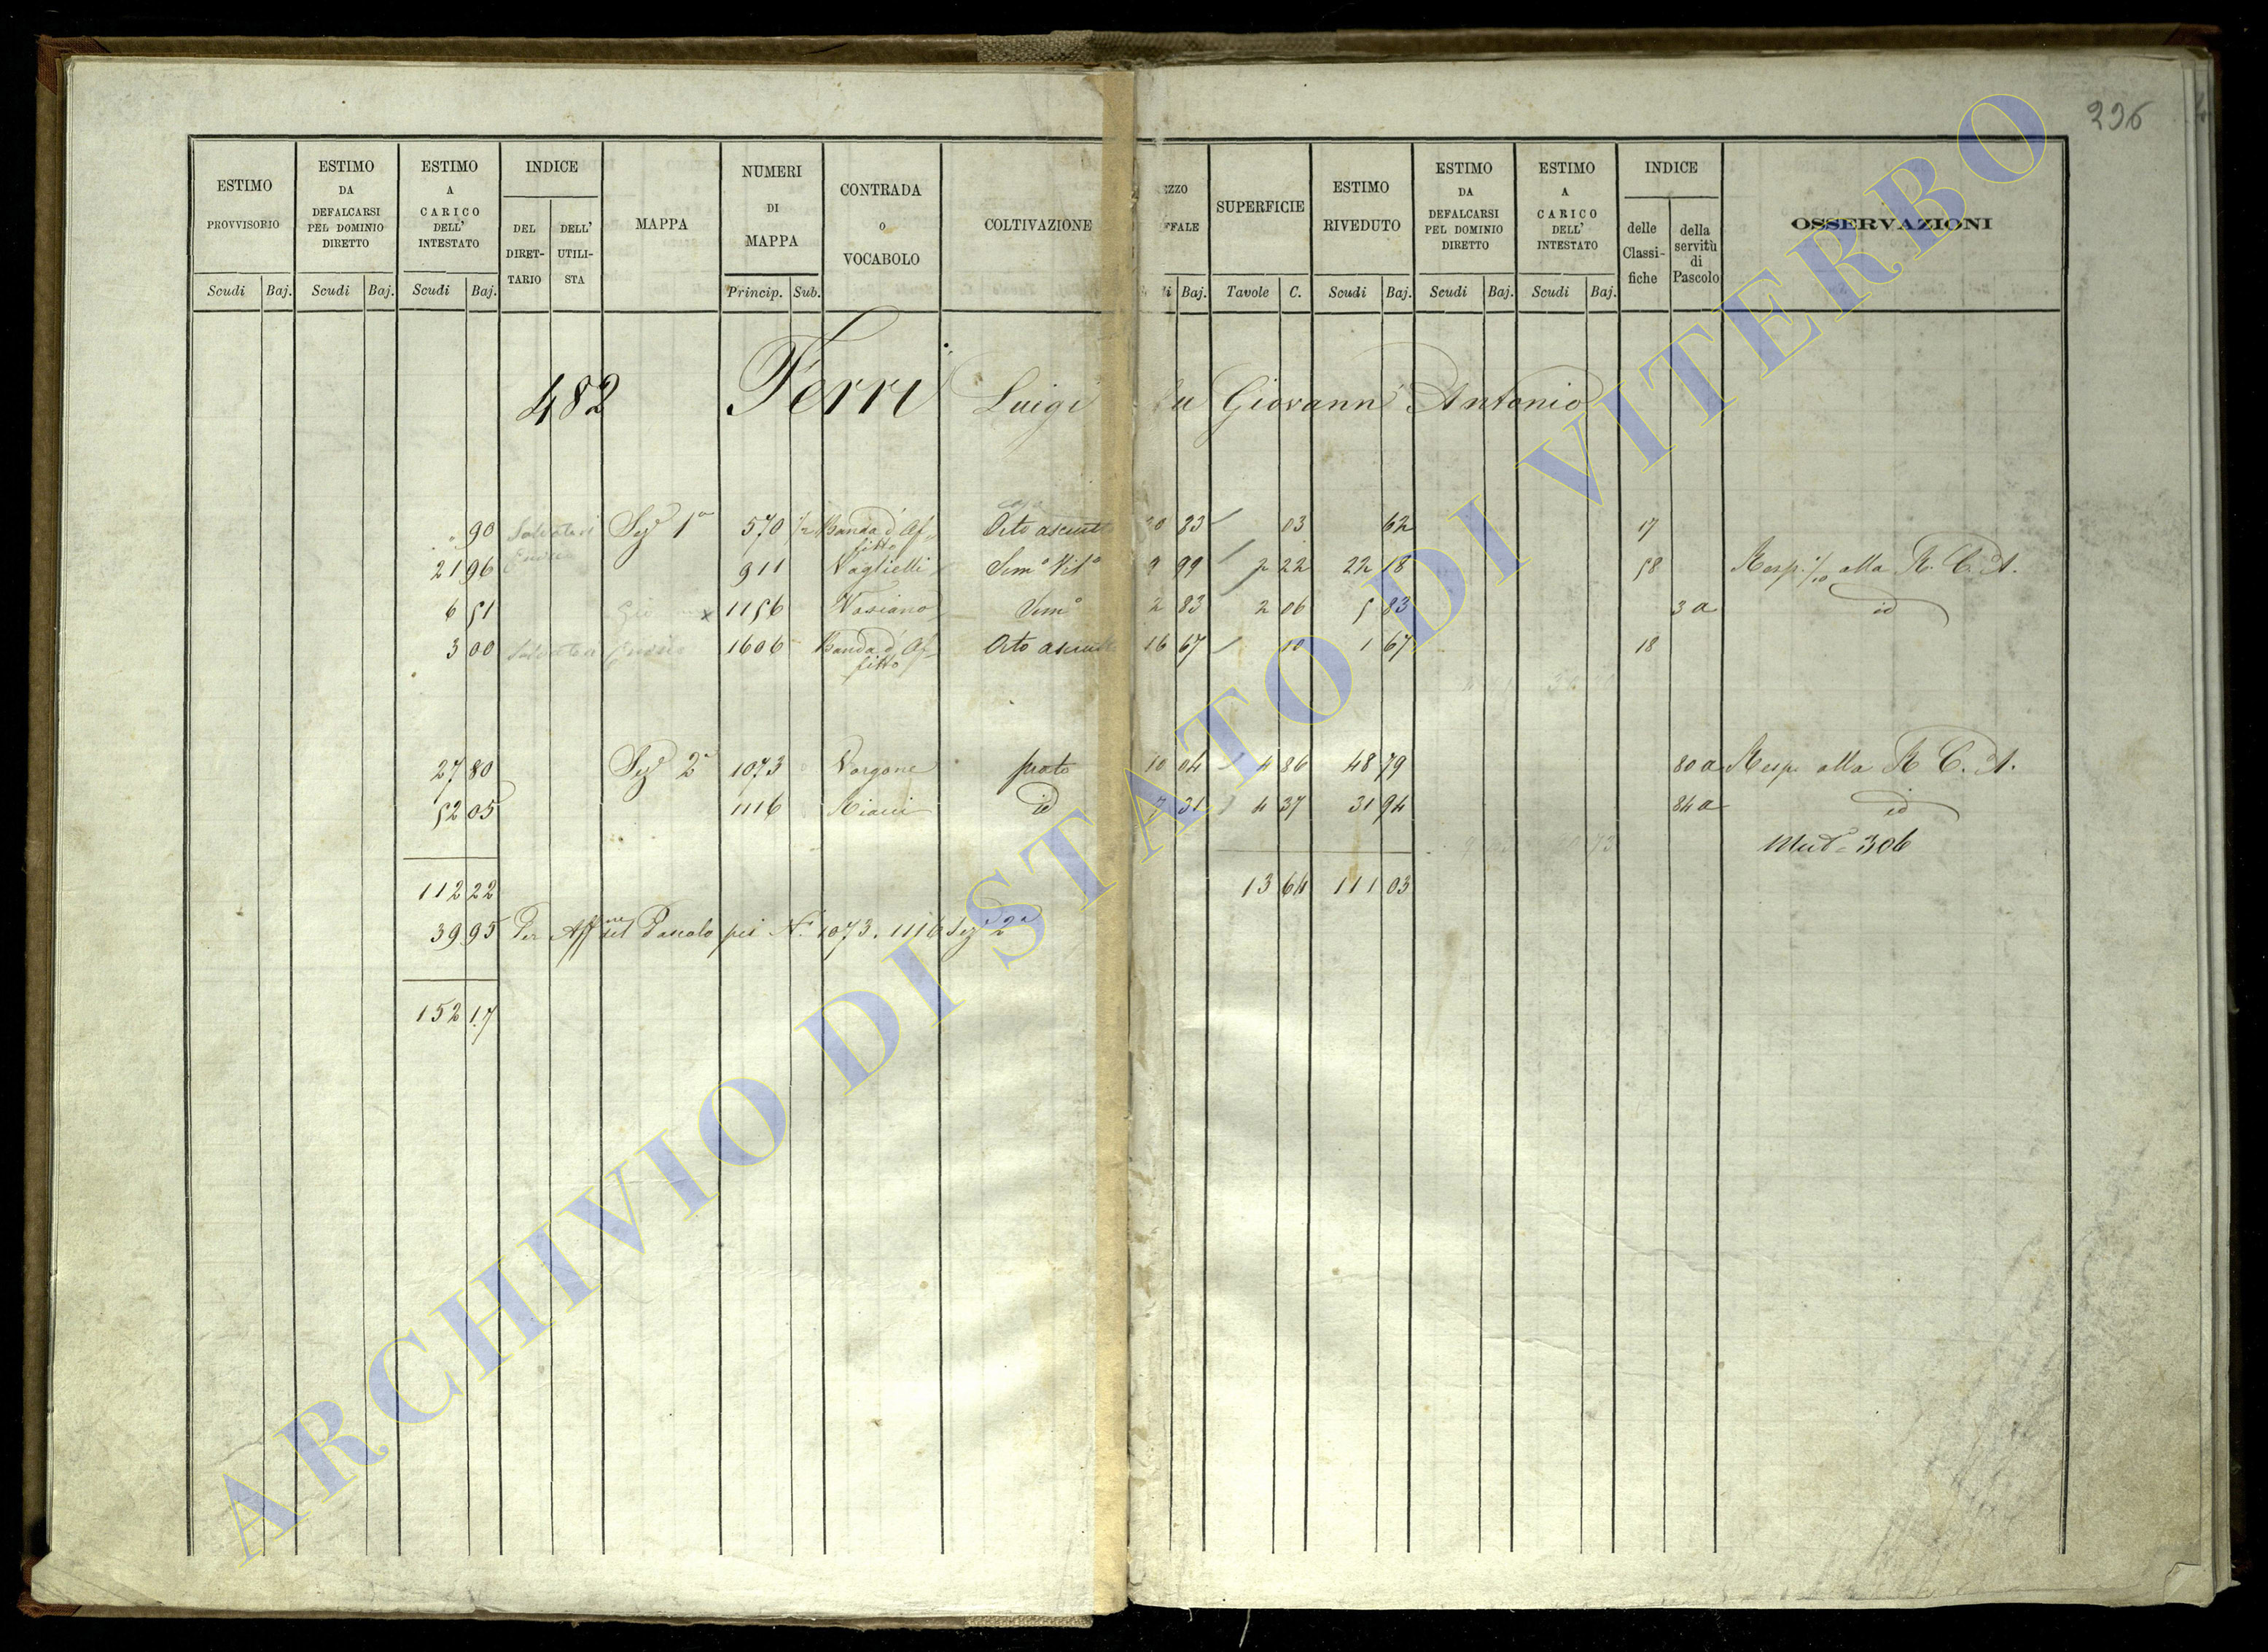 236
ESTIMO PROVVISORIO
Scudi Baj.
ESTIMO DA DEFALCARSI PEL DOMINIO DIRETTO
Scudi Baj.
ESTIMO A CARICO DELL' INTESTATO
Scudi Baj.
INDICE
DEL DIRET- TARIO
DELL' UTILI- STA
MAPPA
NUMERI DI MAPPA
Princip. Sub.
CONTRADA o VOCABOLO
COLTIVAZIONE
EZZO
FFALE
Baj.
SUPERFICIE
Tavole C.
ESTIMO RIVEDUTO
Scudi Baj.
ESTIMO DA DEFALCARSI PEL DOMINIO DIRETTO
Scudi Baj.
ESTIMO A CARICO DELL' INTESTATO
Scudi Baj.
INDICE
delle Classi- fiche
della servitù di Pascolo
OSSERVAZIONI
482 Ferri Luigi fu Giovanni Antonio
90 Salvatori Sez.e 1a 570 1/2 Banda d'Af- Orto asciutto 83 03 62 17
fitto
21 96 911 Vaglielli Sem.o Vit.o 9 99 2 22 22 18 58 Resp. 1/10 alla R. C. A.
6 51 1156 Sem.o 2 83 2 06 5 83 3 a id
3 00 Salvatori 1606 Banda d'Af- Orto asciutto 16 67 10 1 67 18
fitto
27 80 Sez.e 2a 1073 Vorgone prato 10 04 4 86 48 79 80 a Resp. alla R. C. A.
52 05 1116 id 7 31 4 37 31 94 84 a id
Mut. 306
112 22 13 64 111 03
39 95 Per Aff.ne del Pascolo pei N. 1073. 1116 Sez 2a
152 17
ARCHIVIO DI STATO DI VITERBO